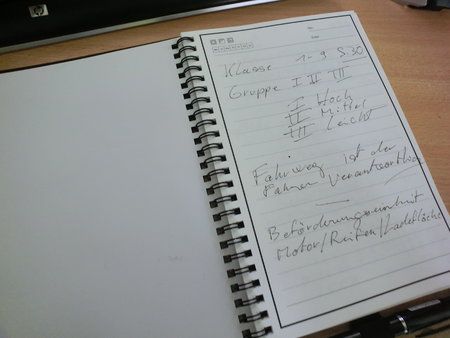 hp
Klasse 1-9 S.30
Gruppe I II III
I Hoch
II Mittel
III Leicht
Fahrweg ist der
Fahrer Verantwortlich
Beförderungseinheit
Motor/Reifen/Ladefläche